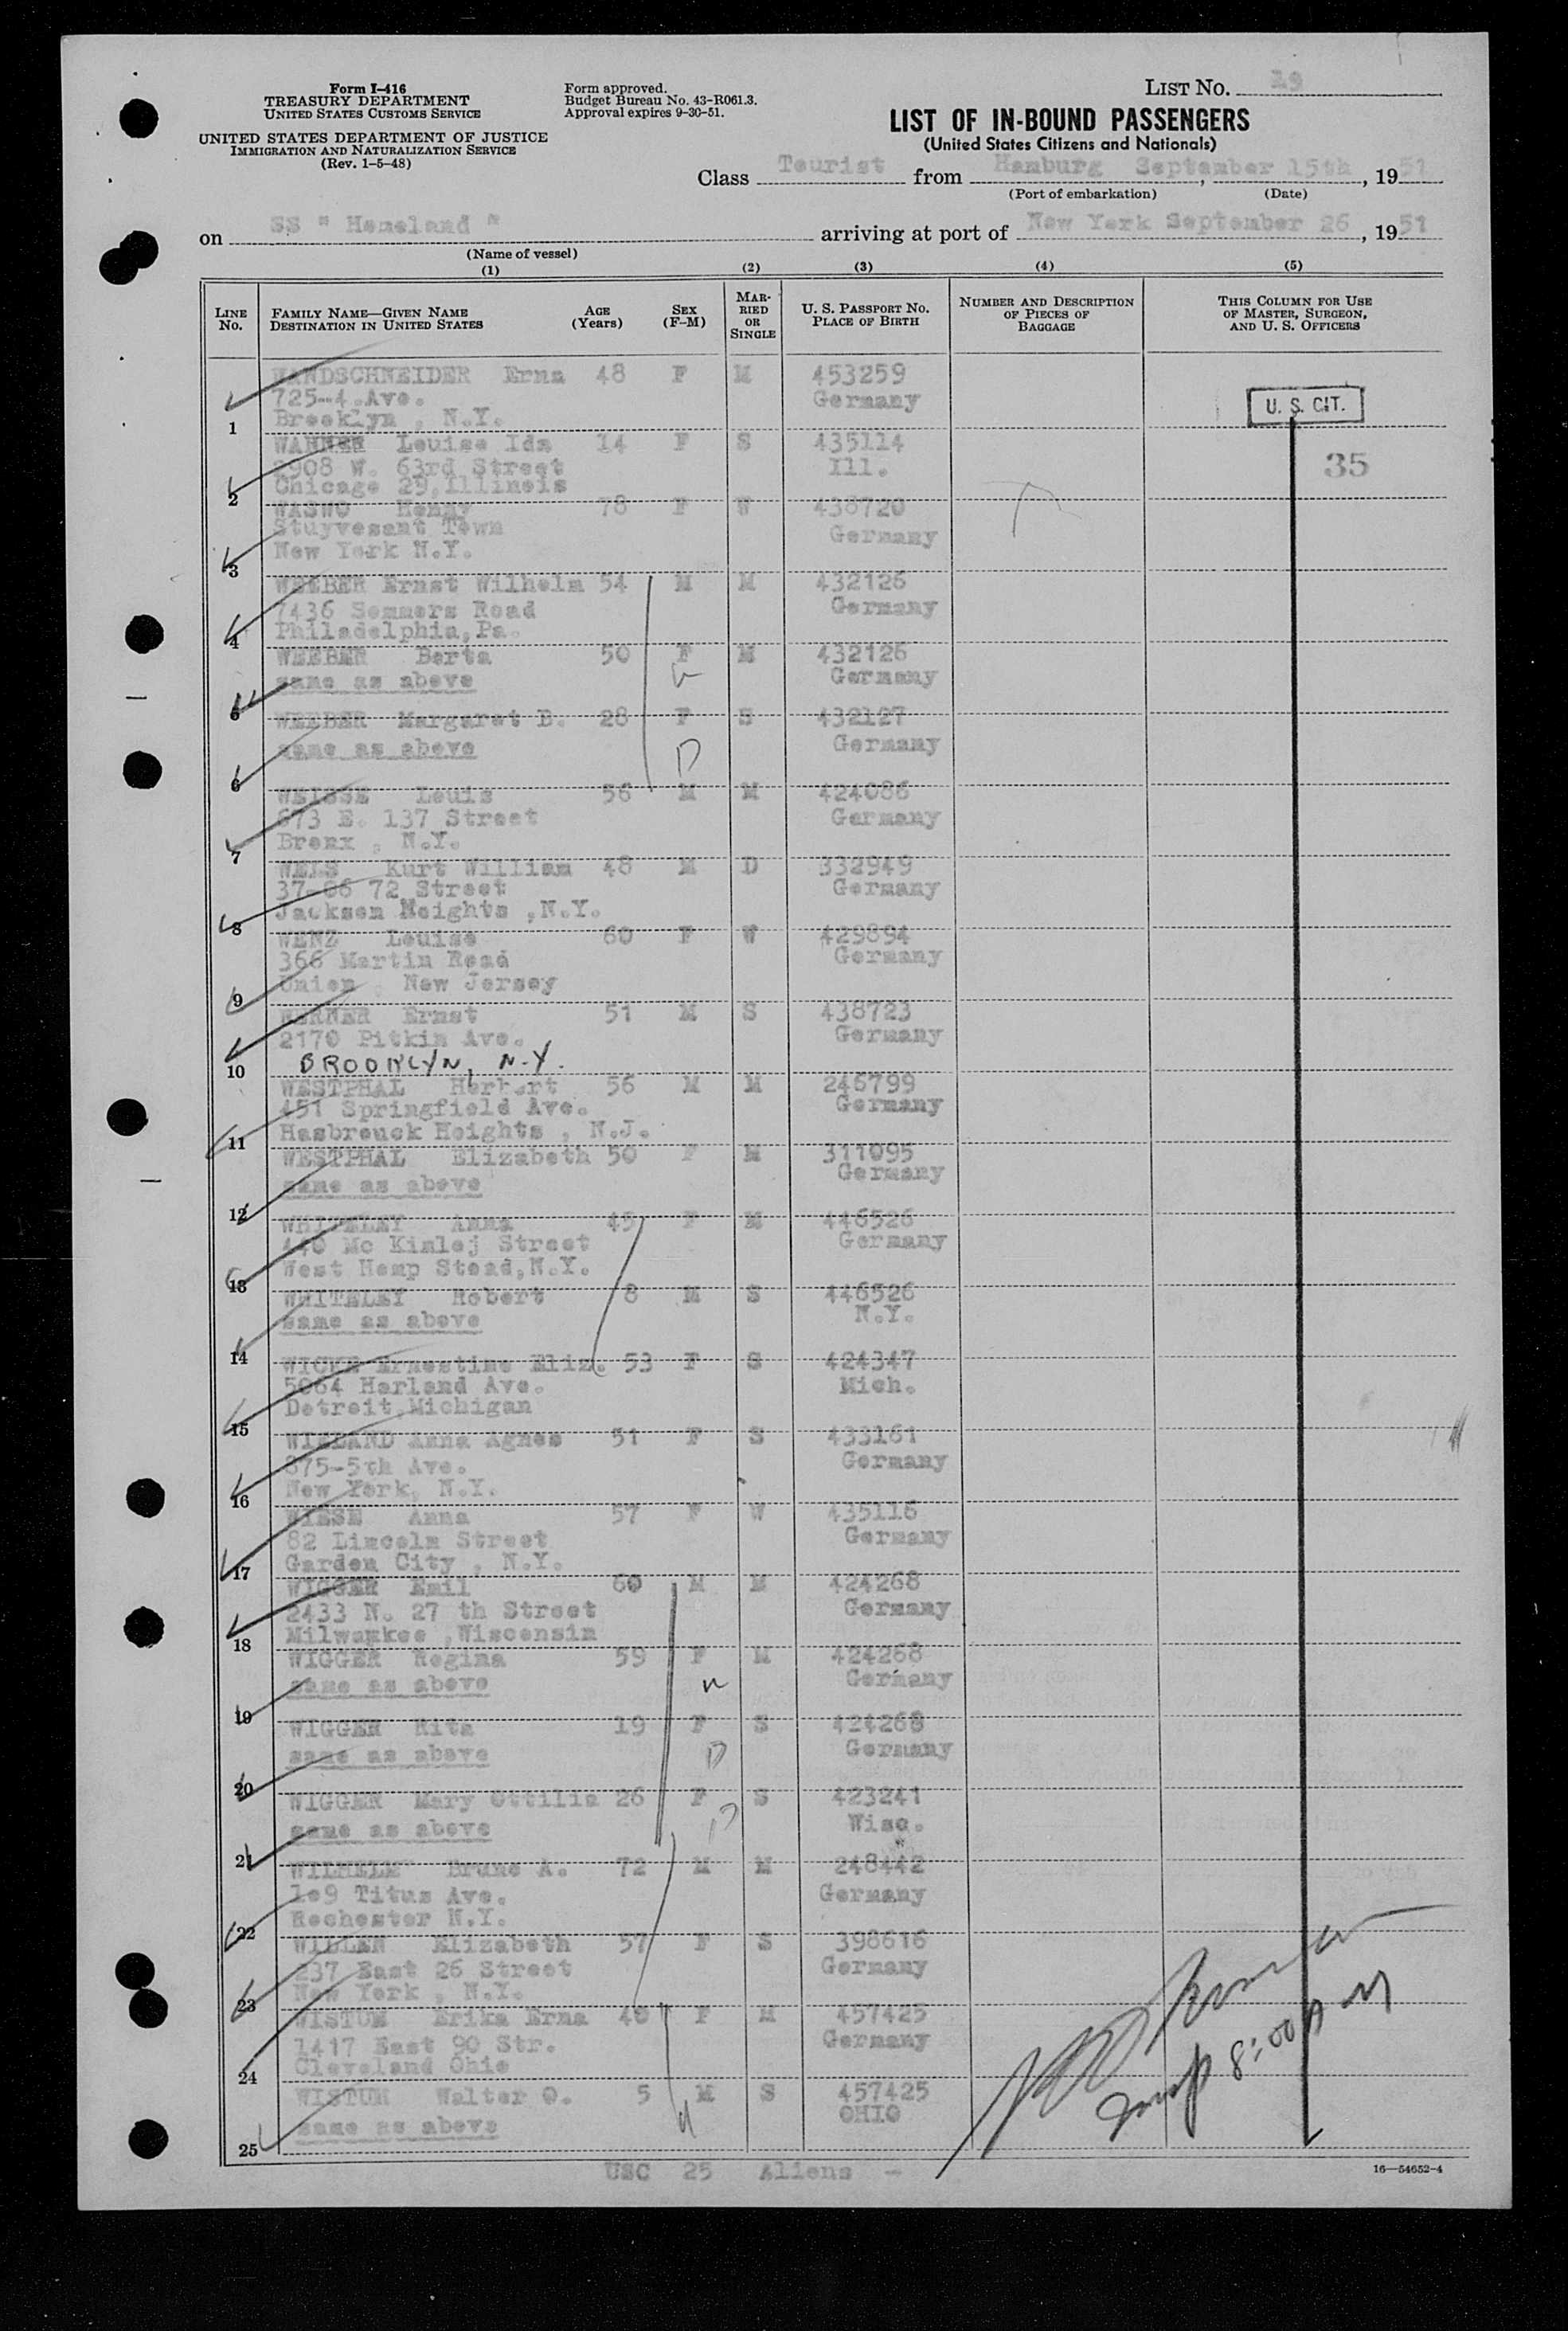 Form I-416
TREASURY DEPARTMENT
UNITED STATES CUSTOMS SERVICE
UNITED STATES DEPARTMENT OF JUSTICE
IMMIGRATION AND NATURALIZATION SERVICE
(Rev. 1-5-48)
Form approved.
Budget Bureau No. 43-R061.3.
Approval expires 9-30-51.
LIST NO. 29
LIST OF IN-BOUND PASSENGERS
(United States Citizens and Nationals)
Class Tourist from Hamburg, September 15th, 1951
(Port of embarkation) (Date)
on SS " Homeland " arriving at port of New York September 26, 1951
(Name of vessel)
(1) (2) (3) (4) (5)
LINE NO. FAMILY NAME—GIVEN NAME DESTINATION IN UNITED STATES AGE (Years) SEX (F-M) MARRIED OR SINGLE U. S. PASSPORT NO. PLACE OF BIRTH NUMBER AND DESCRIPTION OF PIECES OF BAGGAGE THIS COLUMN FOR USE OF MASTER, SURGEON, AND U. S. OFFICERS
WANDSCHNEIDER Erna 48 F M 453259
725-4.Ave. Germany
U. S. CIT.
1 Brooklyn , N.Y.
WARNER Louise Ida 14 F S 435114
2908 W. 63rd Street Ill.
35
2 Chicago 29,Illinois
WASWO Henny 78 F W 438720
Stuyvesant Town Germany
New York N.Y.
3
WEEBER Ernst Wilhelm 54 M M 432126
7436 Sommers Road Germany
Philadelphia,Pa.
4
WEEBER Berta 50 F M 432126
same as above Germany
5
WEEBER Margaret B. 28 F S 432127
same as above Germany
D
6
WEISSE Louis 56 M M 424086
673 E. 137 Street Germany
Bronx , N.Y.
7
WELS Kurt William 48 M D 332949
37-06 72 Street Germany
Jackson Heights ,N.Y.
8
WENZ Louise 60 F W 429894
366 Martin Road Germany
Union , New Jersey
9
WERNER Ernst 51 M S 438723
2170 Pitkin Ave. Germany
10 BROOKLYN, N.Y.
WESTPHAL Herbert 56 M M 246799
451 Springfield Ave. Germany
Hasbrouck Heights , N.J.
11
WESTPHAL Elizabeth 50 F M 311095
same as above Germany
12
WHITELEY Anna 45 F M 446526
440 Mc Kinlej Street Germany
West Hemp Stead,N.Y.
13
WHITELEY Robert 8 M S 446526
same as above N.Y.
14
WICKE Ernestine Eliz. 53 F S 424347
5064 Harland Ave. Mich.
Detroit,Michigan
15
WIELAND Anna Agnes 51 F S 433161
875-5th Ave. Germany
New York, N.Y.
16
WIESE Anna 57 F W 435116
82 Lincoln Street Germany
Garden City , N.Y.
17
WIGGER Emil 60 M M 424268
2433 N. 27 th Street Germany
Milwaukee ,Wisconsin
18
WIGGER Regina 59 F M 424268
same as above Germany
19
WIGGER Rita 19 F S 424268
same as above Germany
D
20
WIGGER Mary Ottilia 26 F S 423241
same as above Wisc.
D
21
WILHELM Bruno A. 72 M M 248442
109 Titus Ave. Germany
Rochester N.Y.
22
WILLEN Elizabeth 57 F S 398616
237 East 26 Street Germany
New York , N.Y.
23
WISTUM Erika Erna 40 F M 457425
1417 East 90 Str. Germany
Cleveland Ohio
24
WISTUM Walter O. 5 M S 457425
same as above OHIO
25
8:00 A M
USC 25 Aliens -
16—54652-4